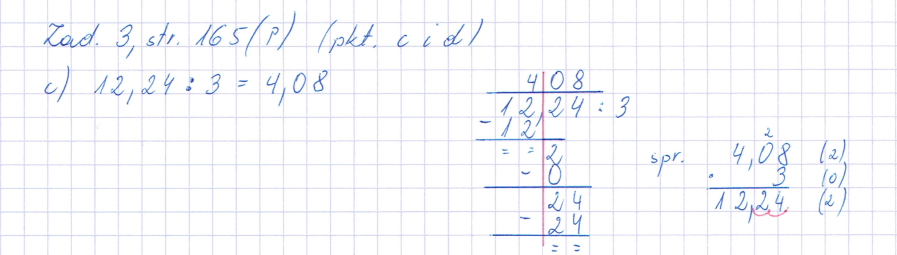 Zad. 3, str. 165 (P) (pkt. c i d)
c) 12,24 : 3 = 4,08
4 08
12,24 : 3
- 12
= = 2
- 0
24
- 24
= =
spr.
2
4,08 (2)
· 3 (0)
12,24 (2)